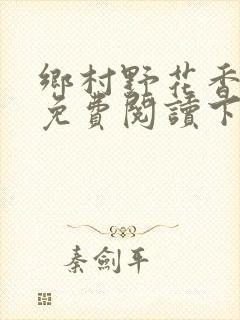 鄉村野花香
免費閱讀下
秦劍平